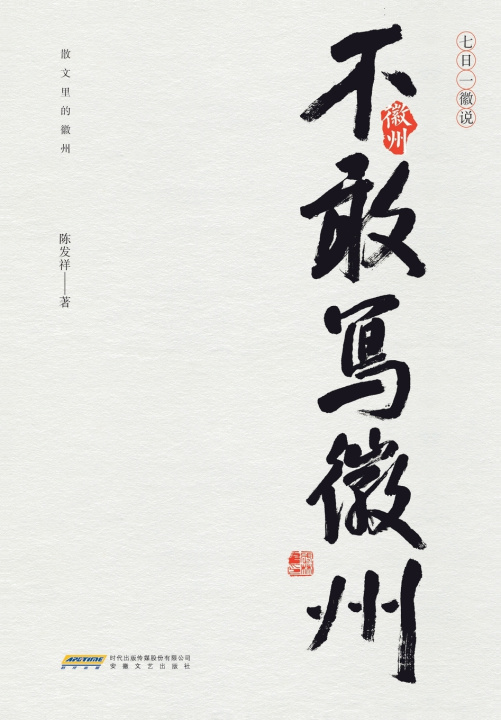 七日一徽说
不敢写徽州
徽州
散文里的徽州
陈发祥——著
APGTIME
时代出版传媒股份有限公司
安徽文艺出版社